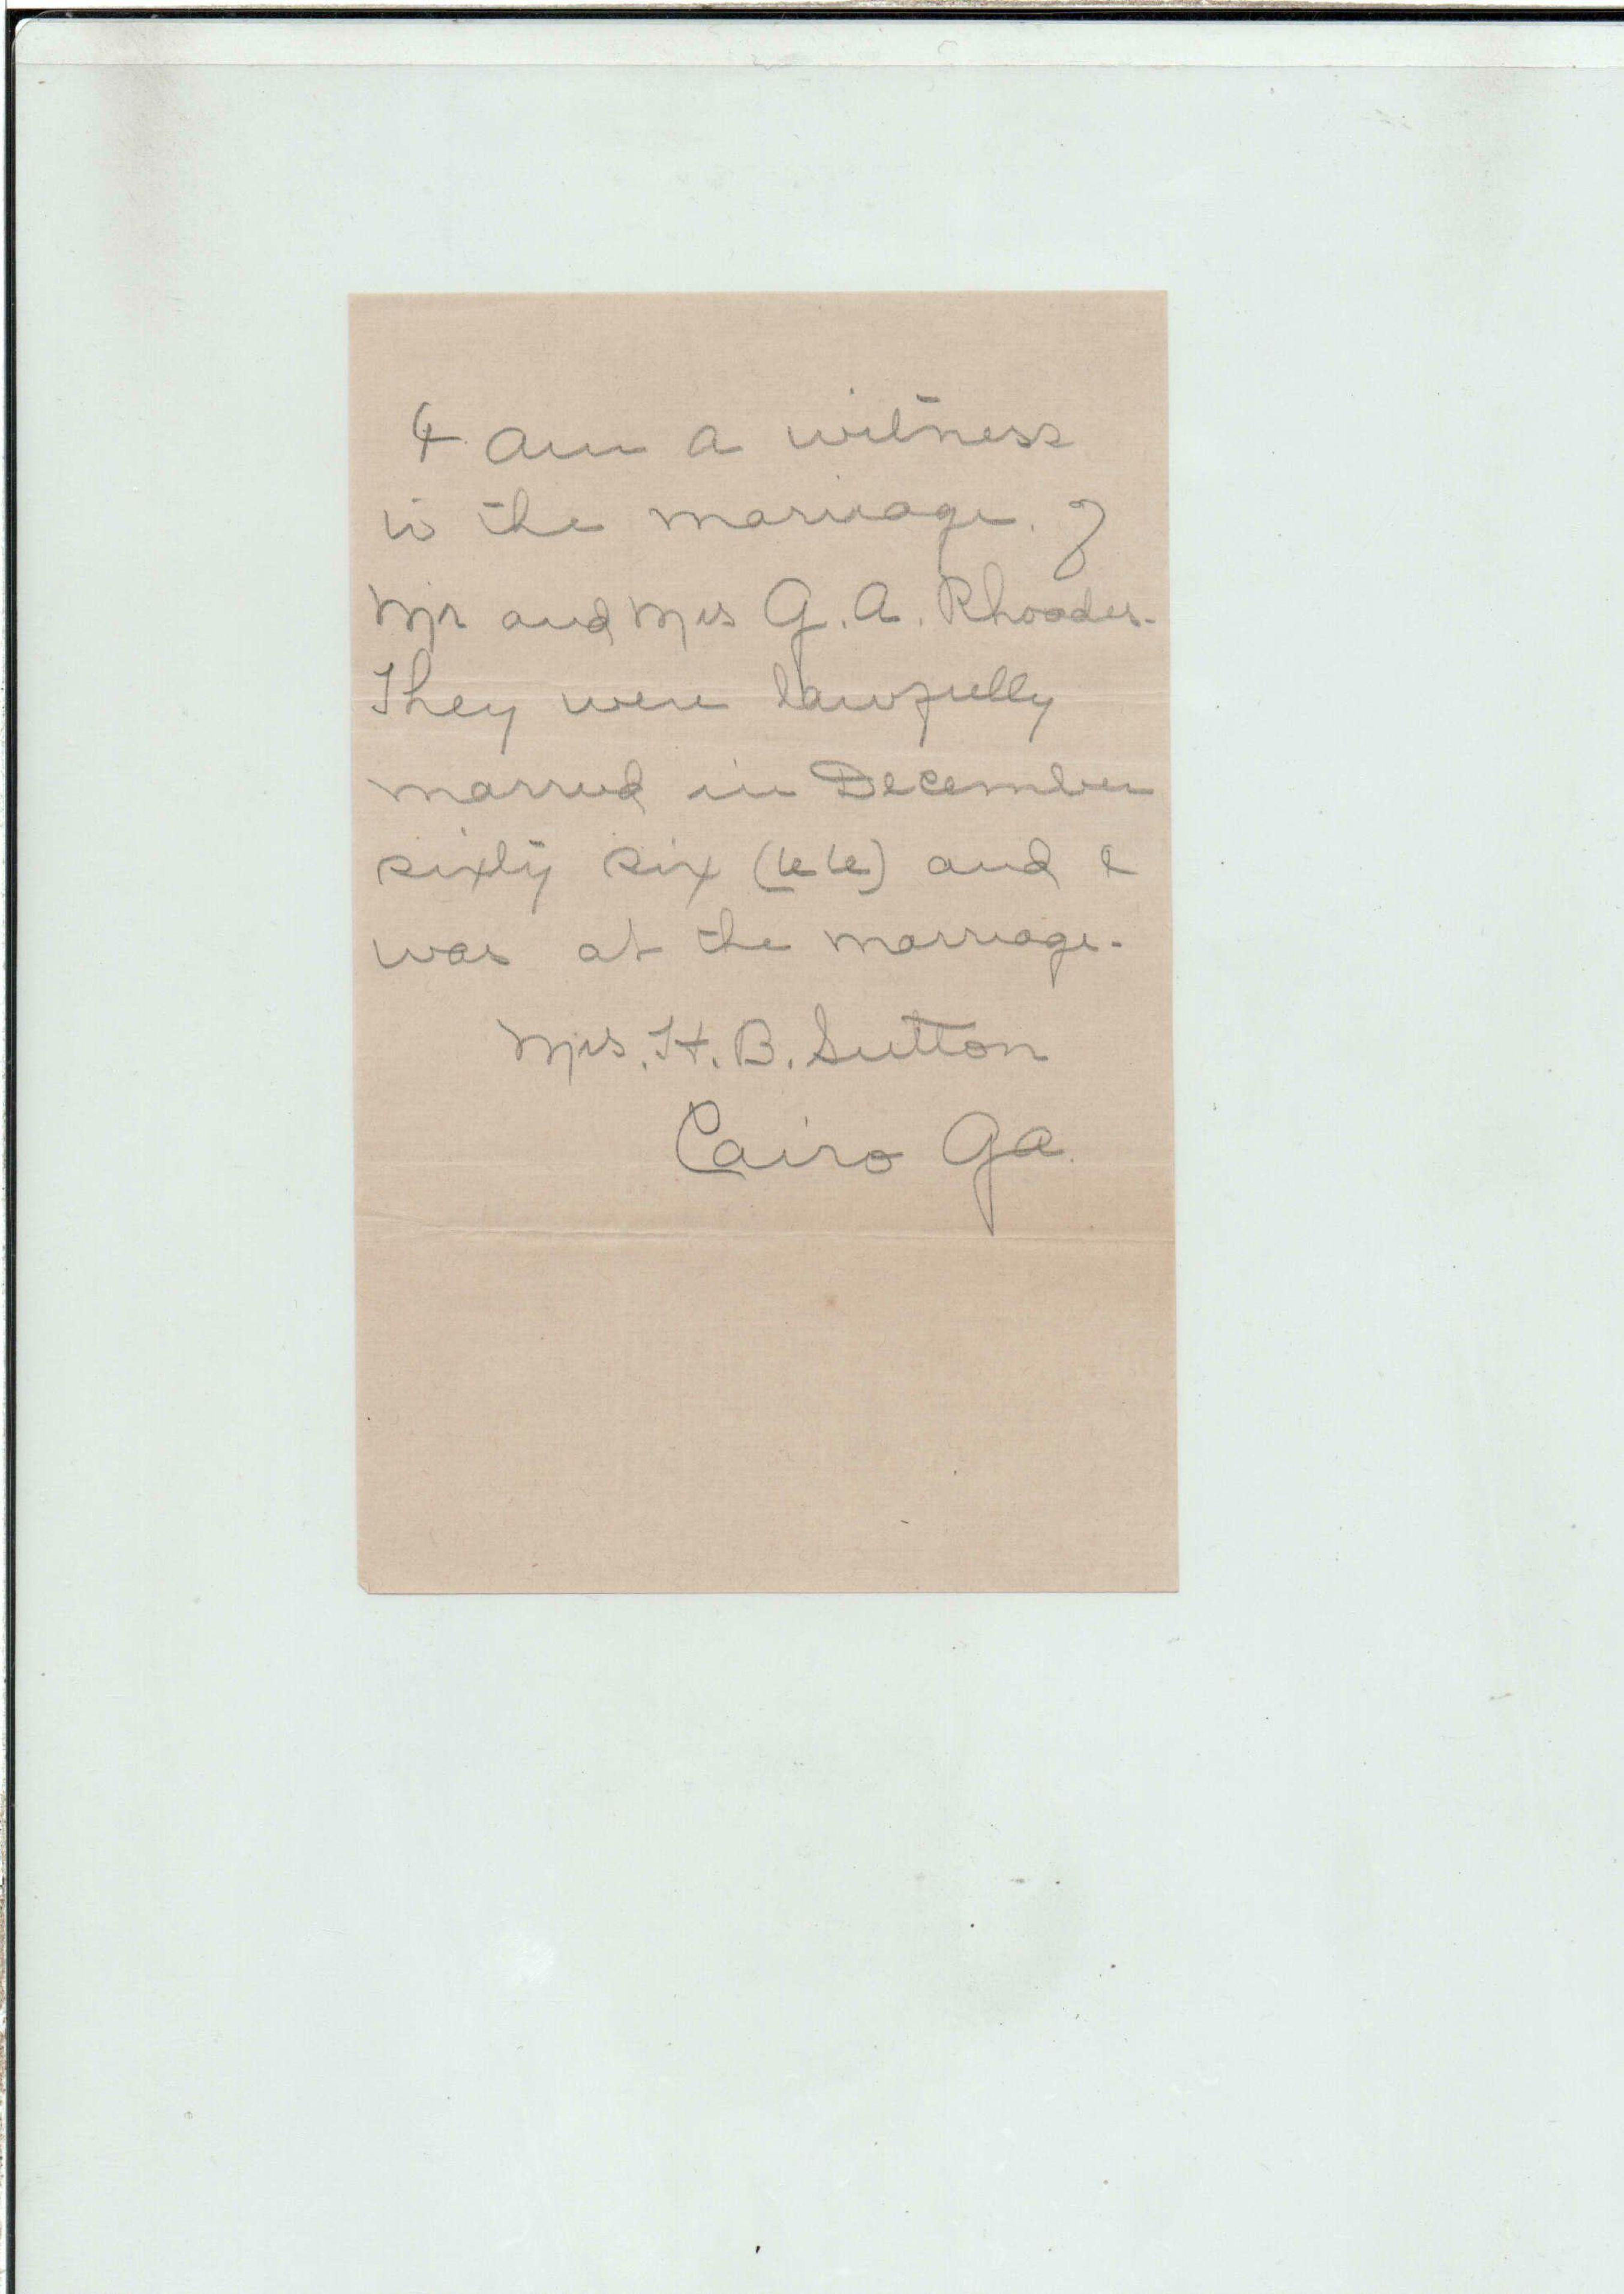 I am a witness
to the marriage of
Mr and Mrs G. A. Rhoades.
They were lawfully
married in December
sixty six (66) and I
was at the marriage.
Mrs. H. B. Sutton
Cairo Ga.